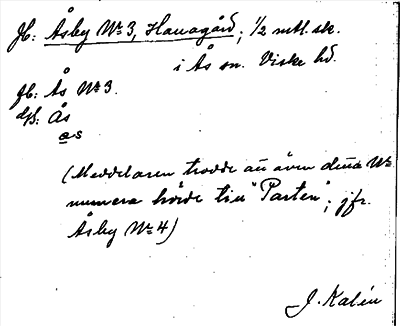 Jb: Åsby Nr 3, Hanagård; 1/2 mtl. sk.
i Ås sn. Viske hd.
fb: Ås Nr 3.
dB: Ås
as
(Meddelaren trodde att även detta Nr
numera hörde till "Parten"; jfr.
Åsby Nr 4)
J. Kalén